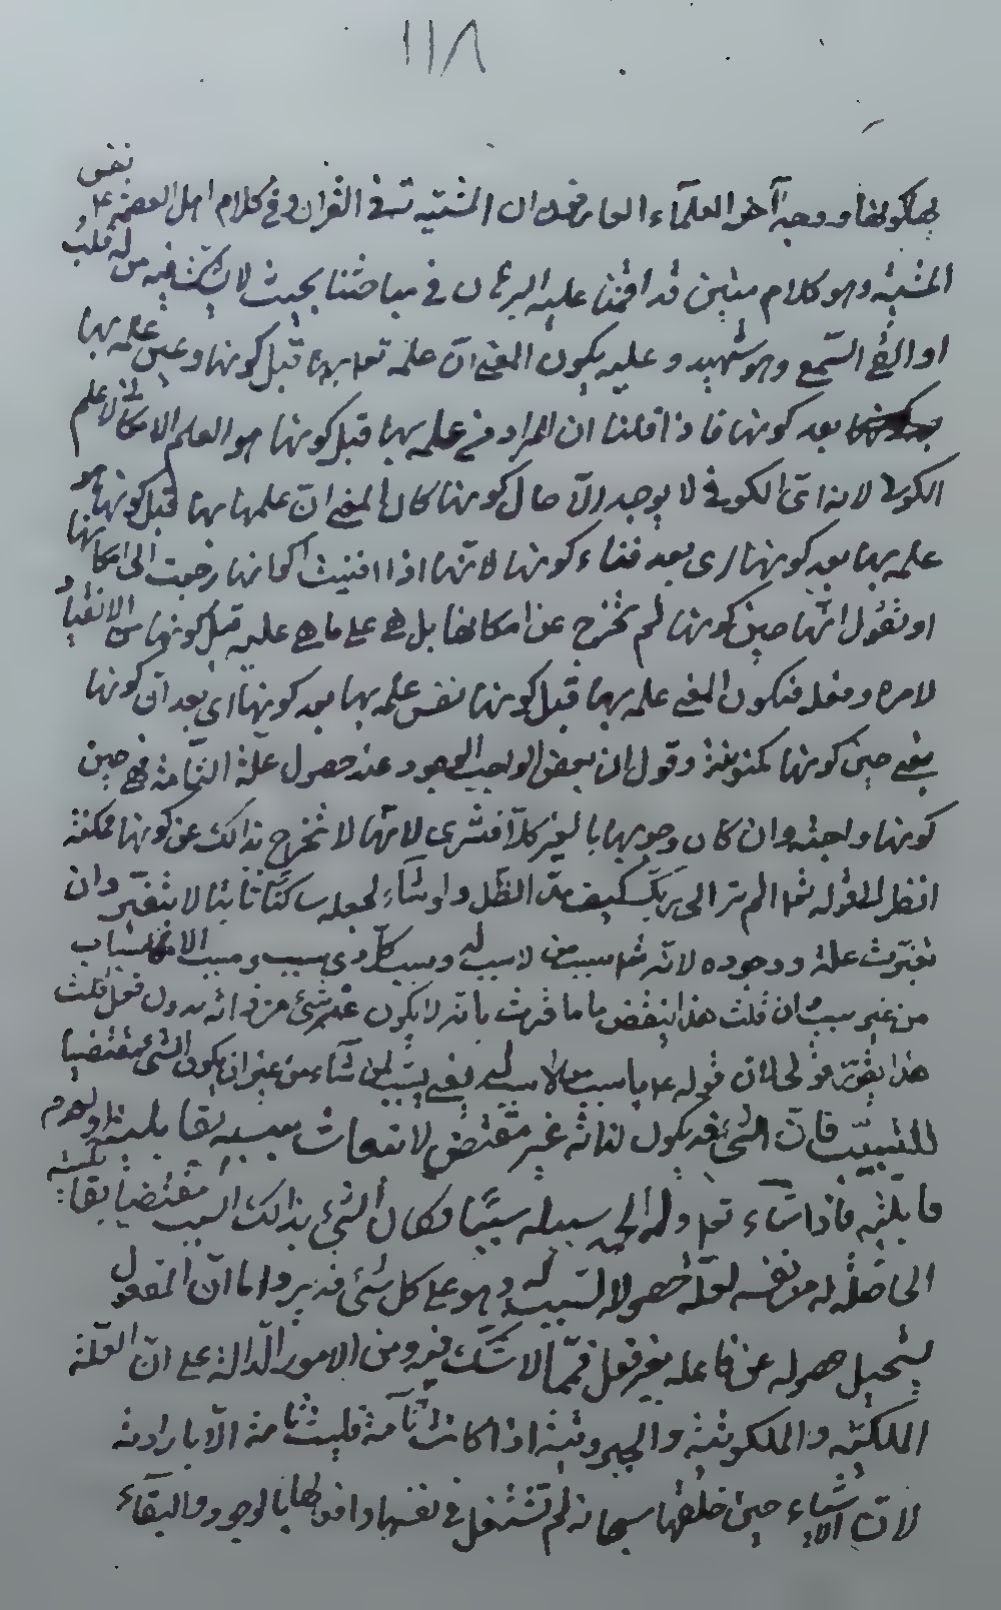 ١١٨
نفس
بعد كونها ووجه آخر العلماء ان المشية في القران وفي كلام اهل العصمة ع
المشية وهو كلام متين قد اقمنا عليه البرهان في مباحثنا بحيث لا يشك فيه من له قلب
او القى السمع وهو شهيد وعليه يكون المعنى ان علمه تعا بها قبل كونها وعين علمه بها
بعد كونها فاذا قلنا ان المراد في علمه بها قبل كونها هو العلم الامكاني لا علم
الكوني لانه اي الكوني لا يوجد الا حال كونها كان المعنى ان علمها بها قبل كونها هو
علمه بها بعد كونها اي بعد فناء كونها لانها اذا افنيت اكوانها رجعت الى امكانها
او نقول انها حين كونها لم تخرج عن امكانها بل هي على ما هي عليه قبل كونها من الانقياد
لامره وفعله فيكون المعنى علمه بها قبل كونها نفس علمه بها بعد كونها اي بعد ان كونها
يعني حين كونها وقول ان بعض الواجب الوجود عند حصول علة التامة فهي حين
كونها واجبة وان كان وجوبها بالغير كلا فشرى لانها لا تخرج بذالك عن كونها ممكنة
انظر الى قوله تعا الم تر الى ربك كيف مد الظل ولو شاء لجعله ساكنا ثابتا لا يتغير وان
تغيرت علة ووجوده لانه تعا سبب من لا سبب له وسبب كل ذي سبب ومسبب الاسباب
من غير سبب ان قلت هذا ينقض ما قررت بانه لا يكون عنه شيء من ذاته بدون فعل قلت
هذا يقرر قولي لان قوله ع يا سبب من لا سبب له يعني يسبب لمن شاء من غير ان يكون الشيء مقتضيا
للتسبيب فان الشيء قد يكون لذاته غير مقتض لانبعاث سببه بقابليته او لعدم
قابليته فاذا شاء تعا سبب له سببا فكان الشيء بذالك السبب مقتضيا بقابليته
له من نفسه لعلة التسبيب له وهو على كل شيء قدير واما ان المفعول
يستحيل حصوله عن فاعله بغير فعل فمما لا شك فيه ومن الامور الدالة على ان العلة
الملكية والملكوتية والجبروتية اذا كانت تامة فليست تامة الا بارادته
لان الاشياء حين خلقها سبحانه لم تشتغل في نفسها وافعالها بالوجود والبقاء